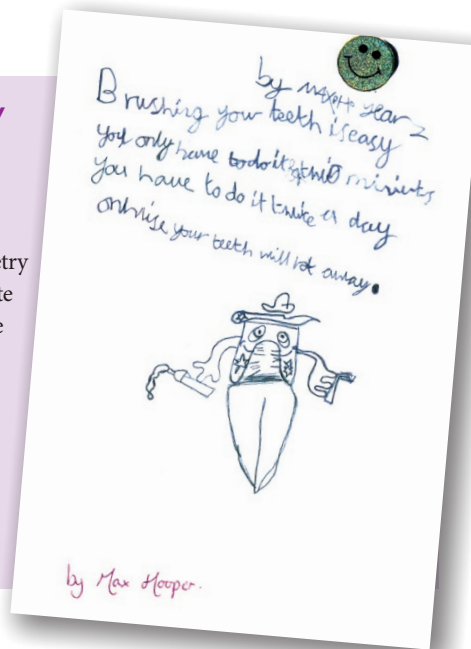 by Max H Year 2
Brushing your teeth is easy
you only have to do it minints
You have to do it twike a day
onhwise your teeth will rot away.
by Max Hooper.
y
etry
te
e